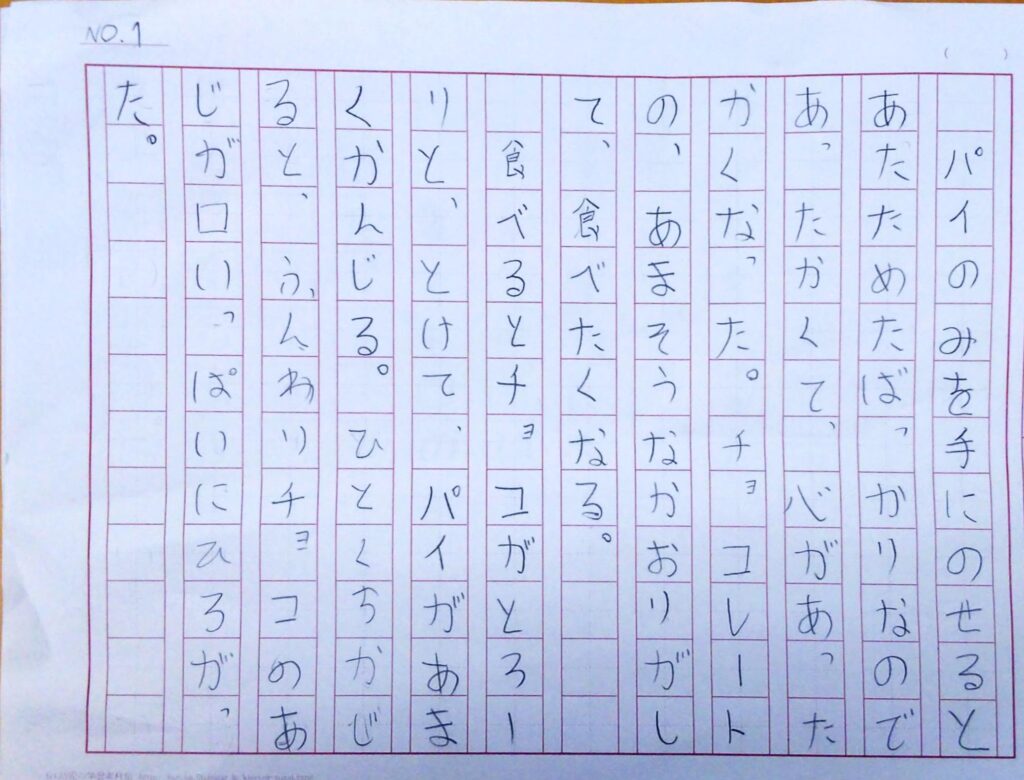 NO.1
　パイのみを手にのせると
あたためたばっかりなので
あったかくて、心があった
かくなった。チョコレート
の、あまそうなかおりがし
て、食べたくなる。
　食べるとチョコがとろー
りと、とけて、パイがあま
くかんじる。ひとくちかじ
ると、ふんわりチョコのあ
じが口いっぱいにひろがっ
た。